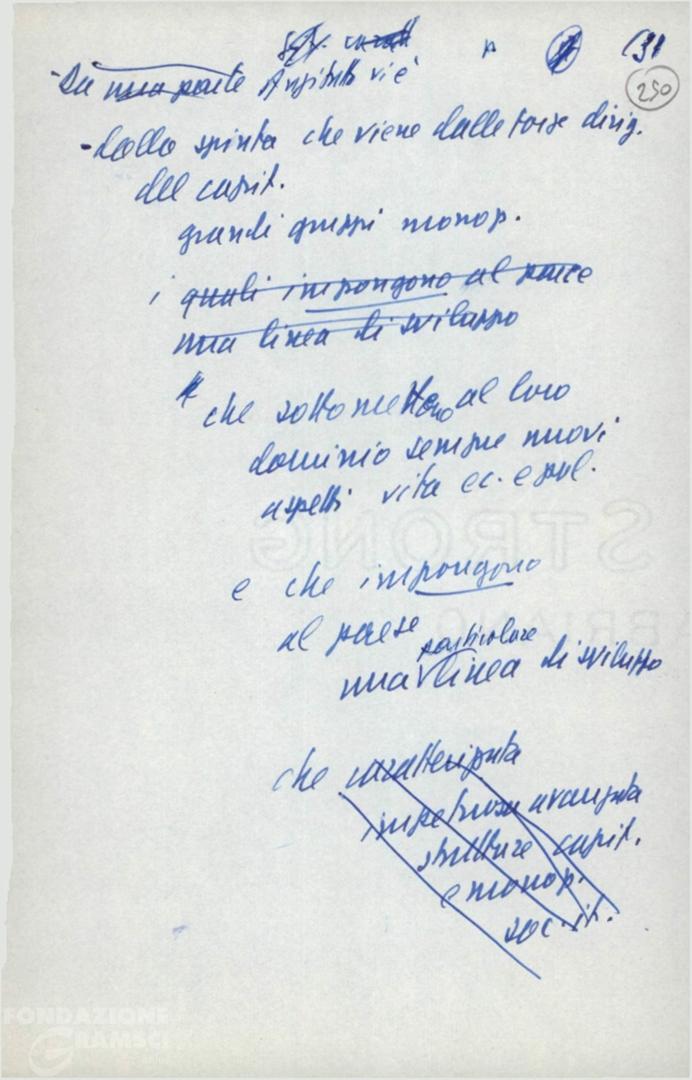 (31
250
- Da una parte Anzitutto vi è
- dalla spinta che viene dalle forze dirig.
del capit.
grandi gruppi monop.
i quali impongono al paese
una linea di sviluppo
che sottomettono al loro
dominio sempre nuovi
aspetti vita ec. e pol.
e che impongono
al paese
particolare
una linea di sviluppo
che caratterizzata
impetuosa avanzata
strutture capit.
e monop.
soc. it.
STRONG
FABRIANO
FONDAZIONE
GRAMSCI